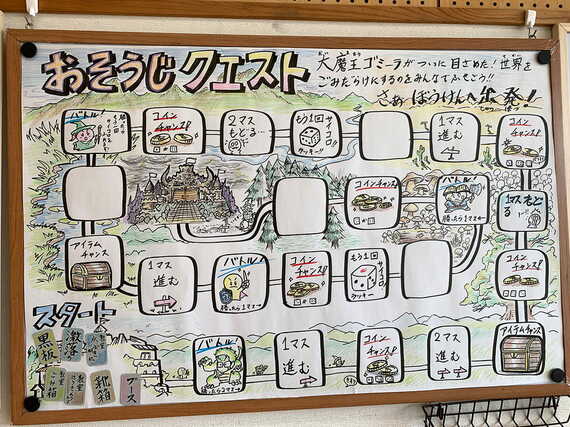 おそうじクエスト
大魔王ゴミーラがついに目さめた!世界を
ごみだらけにするのをみんなでふせごう!!
さぁ ぼうけんへ出発!
バトル!
コイン
チャンス!
2マス
もどる…
もう1回
サイコロ
ラッキー!
1マス
進む
コイン
チャンス!
コインチャンス!
バトル!
勝ったら1マス→
1マスもど
る
アイテム
チャンス
1マス
進む
バトル!
勝ったら1マス→
コイン
チャンス!
もう1回
サイコロ
ラッキー
コイン
チャンス!
スタート
黒板
靴箱
ブース
バトル!
勝ったら2マス→
1マス
進む
コイン
チャンス!
2マス
進む
アイテムチャンス